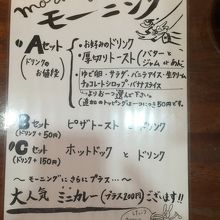 モーニング
Aセット
(ドリンクのお値段)
・お好みのドリンク
・厚切りトースト(バターとジャム
ゆで卵・サラダ・バニラアイス・生クリーム
チョコレートシロップ・バナナスライス
より お一つ選んで下さい。
(追加のトッピングは一つにつき50円です。)
Bセット ピザトースト ドリンク
(ドリンク+50円)
Cセット ホットドック と ドリンク
(ドリンク+150円)
〜モーニングにさらにプラス…〜
大人気 ミニカレー(プラス200円)ございます!!